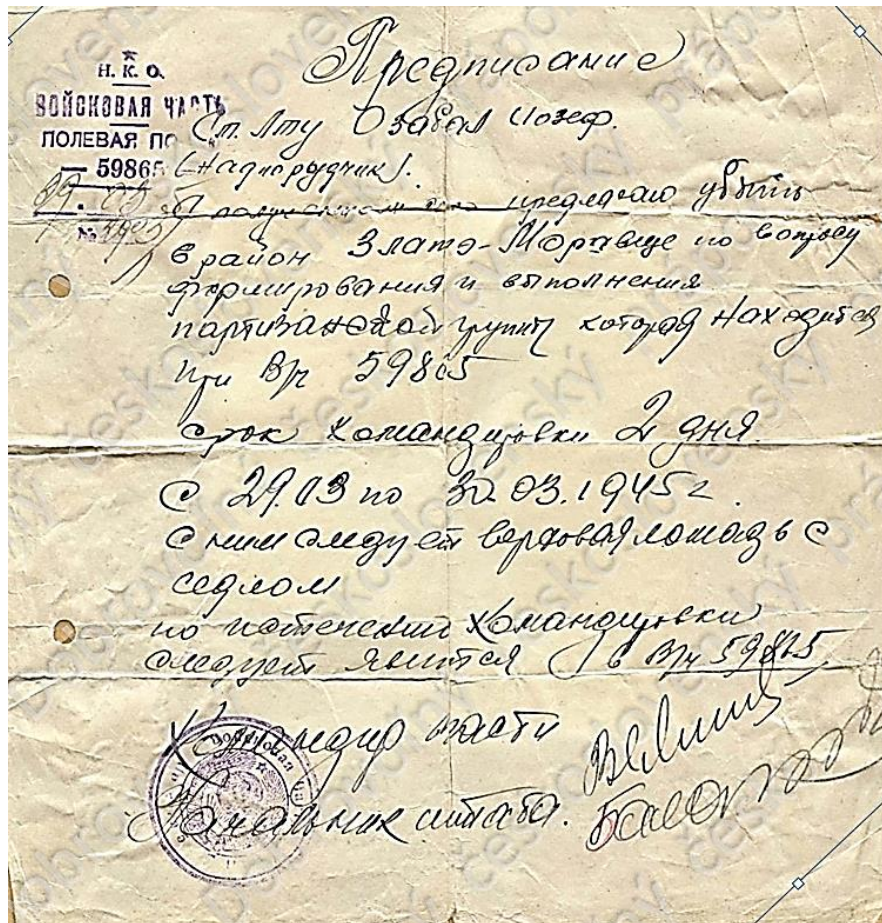 Предписание
Н. К. О.
ВОЙСКОВАЯ ЧАСТЬ
ПОЛЕВАЯ ПО
59865
Ст. Л-ту Дзабал Иозеф.
(Надпорудчик).
С получением сего предлагаю убыть
в район Злато-Моравце по вопросу
формирования и выполнения
партизанской группы которая находится
при В/ч 59865
срок командировки 2 дня.
С 29.03 по 30.03.1945г.
С ним следует верховая лошадь с
седлом
по истечении командировки
следует явится в В/ч 59865
Командир части
Начальник штаба.